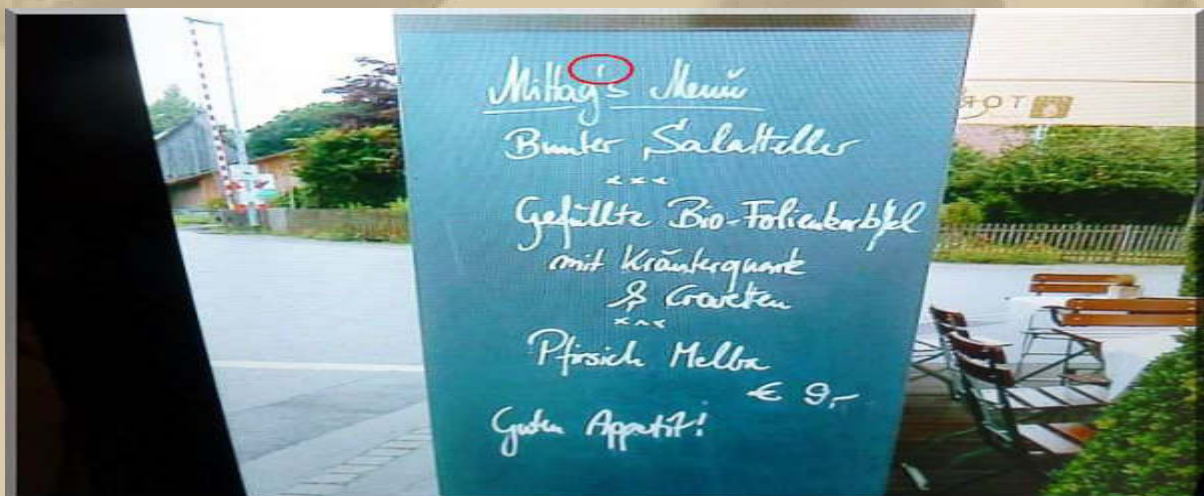 Mittag's Menü
Bunter Salatteller
x x x
Gefüllte Bio-Folienkartoffel
mit Kräuterquark
& Craveten
x x x
Pfirsich Melba
€ 9,-
Guten Appetit!
TOR